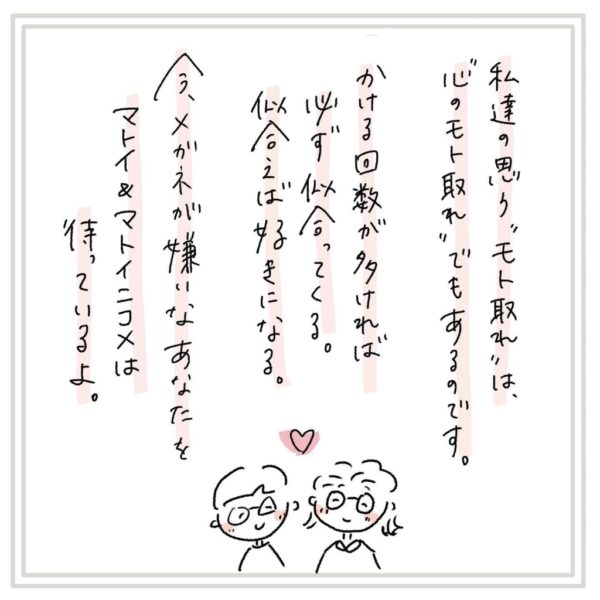 私達の思う"モト取れ"は、
心の"モト取れ"でもあるのです。
かける回数が多ければ
必ず似合ってくる。
似合えば好きになる。
今、メガネが嫌いなあなたを
マトイ&マトイニコメは
待っているよ。